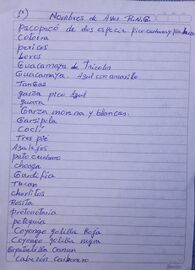 1º)
Nombres de Aves P.N.G.
Pacopaco de dos especie pico
Cotorra
pericos
Loros
Guacamaya Tricolor
Guacamaya. Azul con amarillo
Tangaz
garza pico azul
guara
Garza morena y blancas.
Garsipola
Cocli
Tres pie
Azulejos
pato carbonero
chocga
Gardifia
Tucan
chorlitos
Rosita
pretenetuia
petiguia
Coyongo golilla Roja
Coyongo golilla negra
Comun
Cabezón carbonero